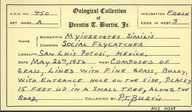 Oological Collection
of
Prentis T. Burtis, Jr.
A.O.U. No. 450
Set Mark A
Incubation Fresh
Eggs in Set 3
Name Myiozetetes Similis
Common Social Flycatcher
Locality San Luis Potosi, Mexico,
Date May 26th, 1956 Nest Composed of
grass, lined with fine grass, bulky,
with entrance hole on the side, placed
15 feet up in a small tree, along the
road.
Collected by P.T. Burtis